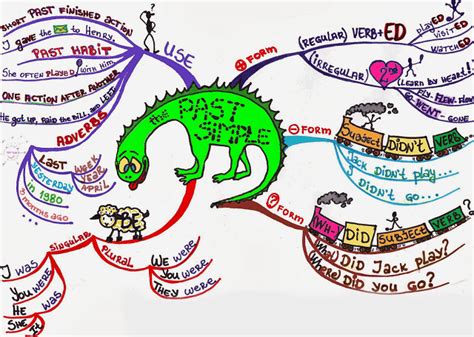 the PAST SIMPLE
USE
SHORT PAST FINISHED ACTION
I gave the to Henry.
PAST HABIT
She often playED with him
ONE ACTION AFTER ANOTHER
He got up, paid the bill, and left
ADVERBS
LAST WEEK
YEAR
APRIL
YESTERDAY
in 1980
5 months ago
BE
SINGULAR
I was
You were
He was
She
It
PLURAL
We were
You were
They were
+ FORM
(REGULAR) VERB+ED
playED
visitED
watchED
(IRREGULAR) 2nd
(LEARN by HEART!)
FLEW
GO-WENT-GONE
- FORM
SUBJECT DIDN'T VERB
Jack DIDN'T play...
I DIDN'T go...
? FORM
WH- DID SUBJECT VERB ?
(What) DID Jack play?
(Where) DID you go?